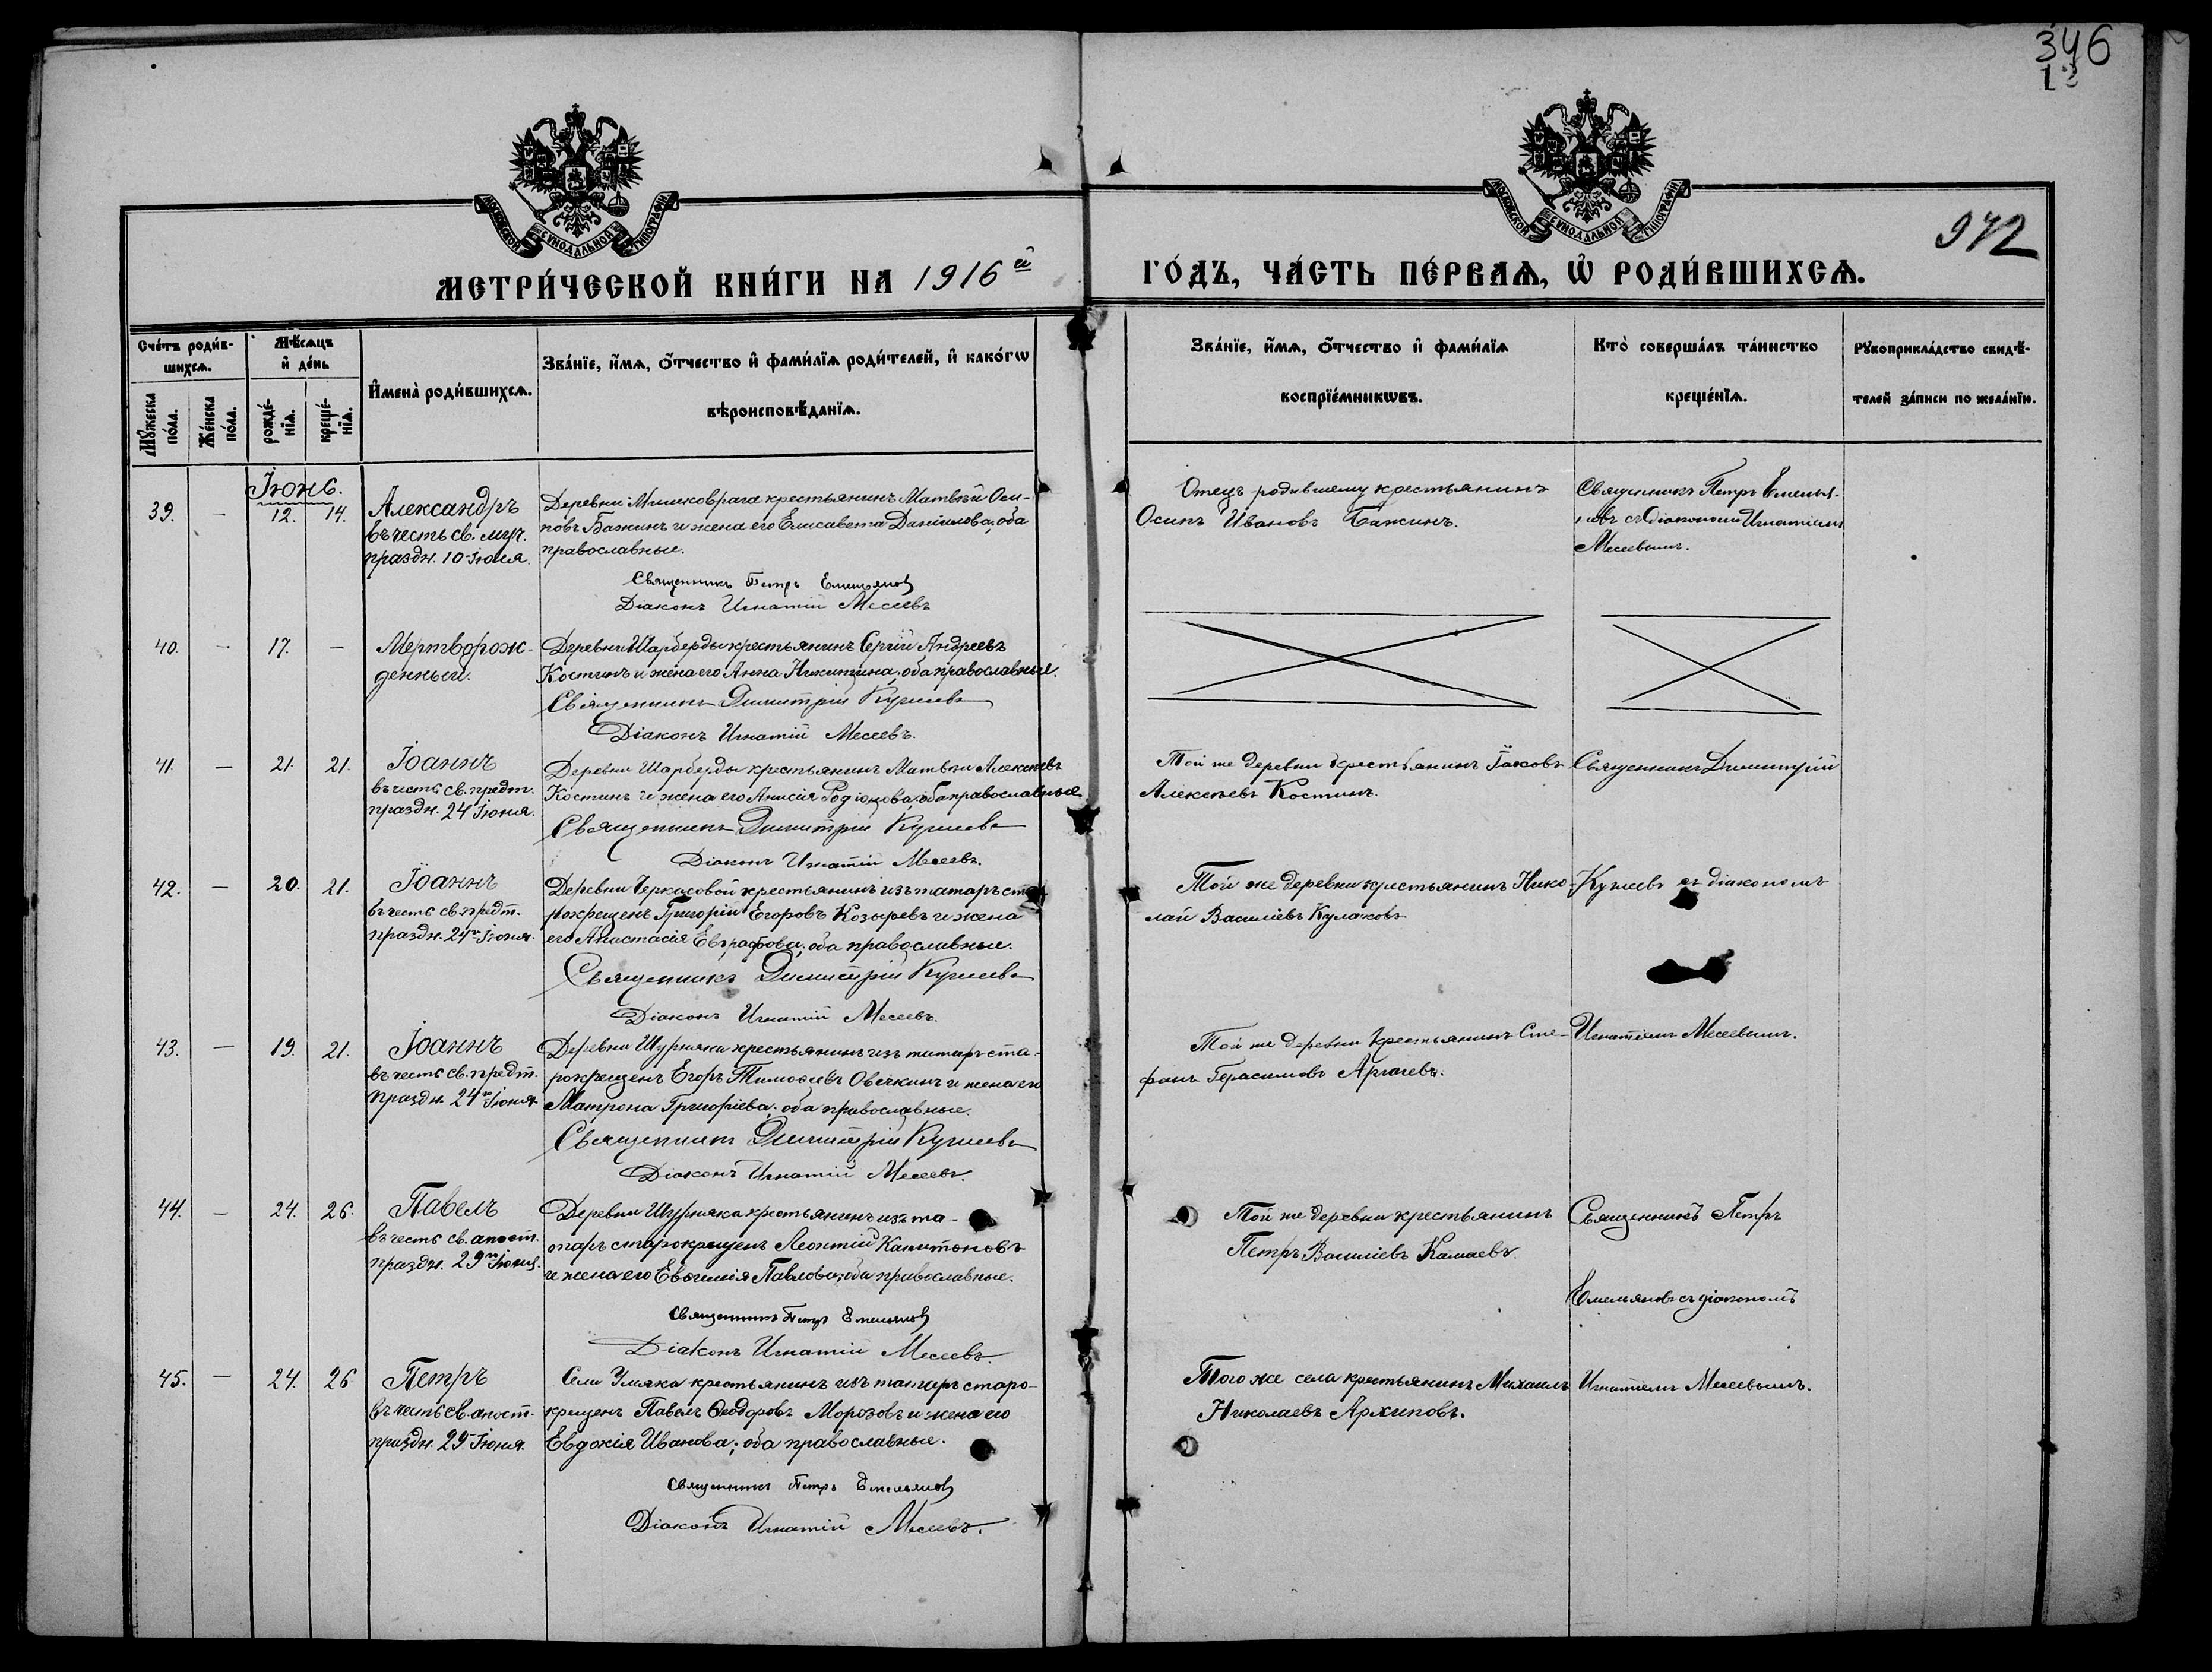 346
МОСКОВСКОЙ СУНОДАЛЬНОЙ ТИПОГРАФІИ
МОСКОВСКОЙ СУНОДАЛЬНОЙ ТИПОГРАФІИ
972
МЕТРИ́ЧЕСКОЙ КНИ́ГИ НА 1916й
ГО́ДЪ, ЧА́СТЬ ПЕ́РВАѦ, Ѽ РОДИ́ВШИХСѦ.
Сче́тъ роди́в-
шихсѧ.
Мꙋ́жеска по́ла.
Же́нска по́ла.
Мѣ́сѧцъ
и҆ де́нь
рожде́-
нїѧ.
креще́-
нїѧ.
И҆мена̀ роди́вшихсѧ.
Зва́нїе, и҆́мѧ, ѻ҆́тчество и҆ фами́лїѧ роди́телей, и҆ како́гѡ
вѣроисповѣ́данїѧ.
Зва́нїе, и҆́мѧ, ѻ҆́тчество и҆ фами́лїѧ
воспрїе́мникѡвъ.
Кто̀ соверша́лъ та́инство
креще́нїѧ.
Рꙋкоприкла́дство свидѣ́-
телей за́писи по жела́нїю.
Іюнь.
39. — 12. 14.
Александръ
въ честь св. муч.
праздн. 10 Іюля.
Деревни крестьянинъ Матвѣй Оси-
повъ Бажинъ и жена его Елисавета Даніилова, оба
православные.
Священникъ Петръ Емельянов
Діаконъ Игнатій Месеевъ
Отецъ родившему крестьянинъ
Осипъ Ивановъ Бажинъ.
Священникъ Петръ Емелья-
новъ съ діакономъ Игнатіемъ
Месеевымъ.
40. — 17. —
Мертворож-
денный.
Деревни Шарберды крестьянинъ Сергій Андреевъ
Костинъ и жена его Анна Никитина; оба православные.
Священникъ Димитрій
Діаконъ Игнатій Месеевъ.
41. — 21. 21.
Іоаннъ
въ честь св. предт.
праздн. 24 Іюня.
Деревни Шарберды крестьянинъ Матвѣй Алексѣевъ
Костинъ и жена его Анисія Родіонова; оба православные.
Священникъ Димитрій
Діаконъ Игнатій Месеевъ.
Той же деревни крестьянинъ Іаковъ
Алексѣевъ Костинъ.
Священникъ Димитрій
42. — 20. 21.
Іоаннъ
въ честь св. предт.
праздн. 24го Іюня.
Деревни Черкасовой крестьянинъ изъ татаръ ста-
рокрещенъ Григорій Егоровъ Козыревъ и жена
его Анастасія Евграфова; оба православные.
Священникъ Димитрій
Діаконъ Игнатій Месеевъ.
Той же деревни крестьянинъ Нико-
лай Василіевъ Кулаковъ.
съ діакономъ
43. — 19. 21.
Іоаннъ
въ честь св. предт.
праздн. 24го Іюня.
Деревни Шурняка крестьянинъ изъ татаръ ста-
рокрещенъ Егоръ Тимоѳеевъ Овечкинъ и жена его
Матрона Григоріева; оба православные.
Священникъ Димитрій
Діаконъ Игнатій Месеевъ.
Той же деревни крестьянинъ Сте-
фанъ Герасимовъ
Игнатіемъ Месеевымъ.
44. — 24. 26.
Павелъ
въ честь св. апост.
праздн. 29го Іюня.
Деревни Шурняка крестьянинъ изъ та-
таръ старокрещенъ Леонтій Капитоновъ
и жена его Евѳимія Павлова; оба православные.
Священникъ Петръ Емельянов
Діаконъ Игнатій Месеевъ.
Той же деревни крестьянинъ
Петръ Василіевъ Камаевъ.
Священникъ Петръ
Емельяновъ съ діакономъ
45. — 24. 26
Петръ
въ честь св. апост.
праздн. 29 Іюня.
Села Умяка крестьянинъ изъ татаръ старо-
крещенъ Павелъ Ѳеодоровъ Морозовъ и жена его
Евдокія Иванова; оба православные.
Священникъ Петръ Емельянов
Діаконъ Игнатій Месеевъ.
Того же села крестьянинъ Михаилъ
Николаевъ Архиповъ.
Игнатіемъ Месеевымъ.